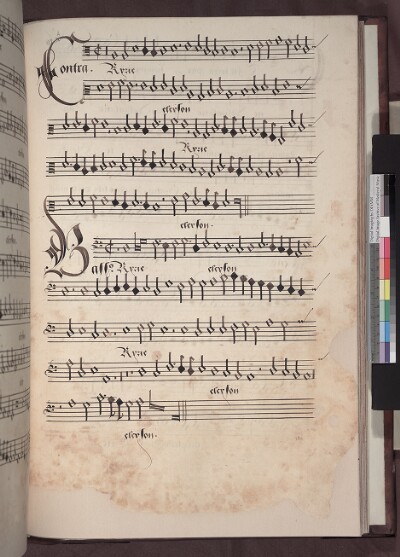 Contra. Kyrie
eleyson
Kyrie
eleyson.
Bass9 Kyrie eleyson
Kyrie
eleyson
eleyson.